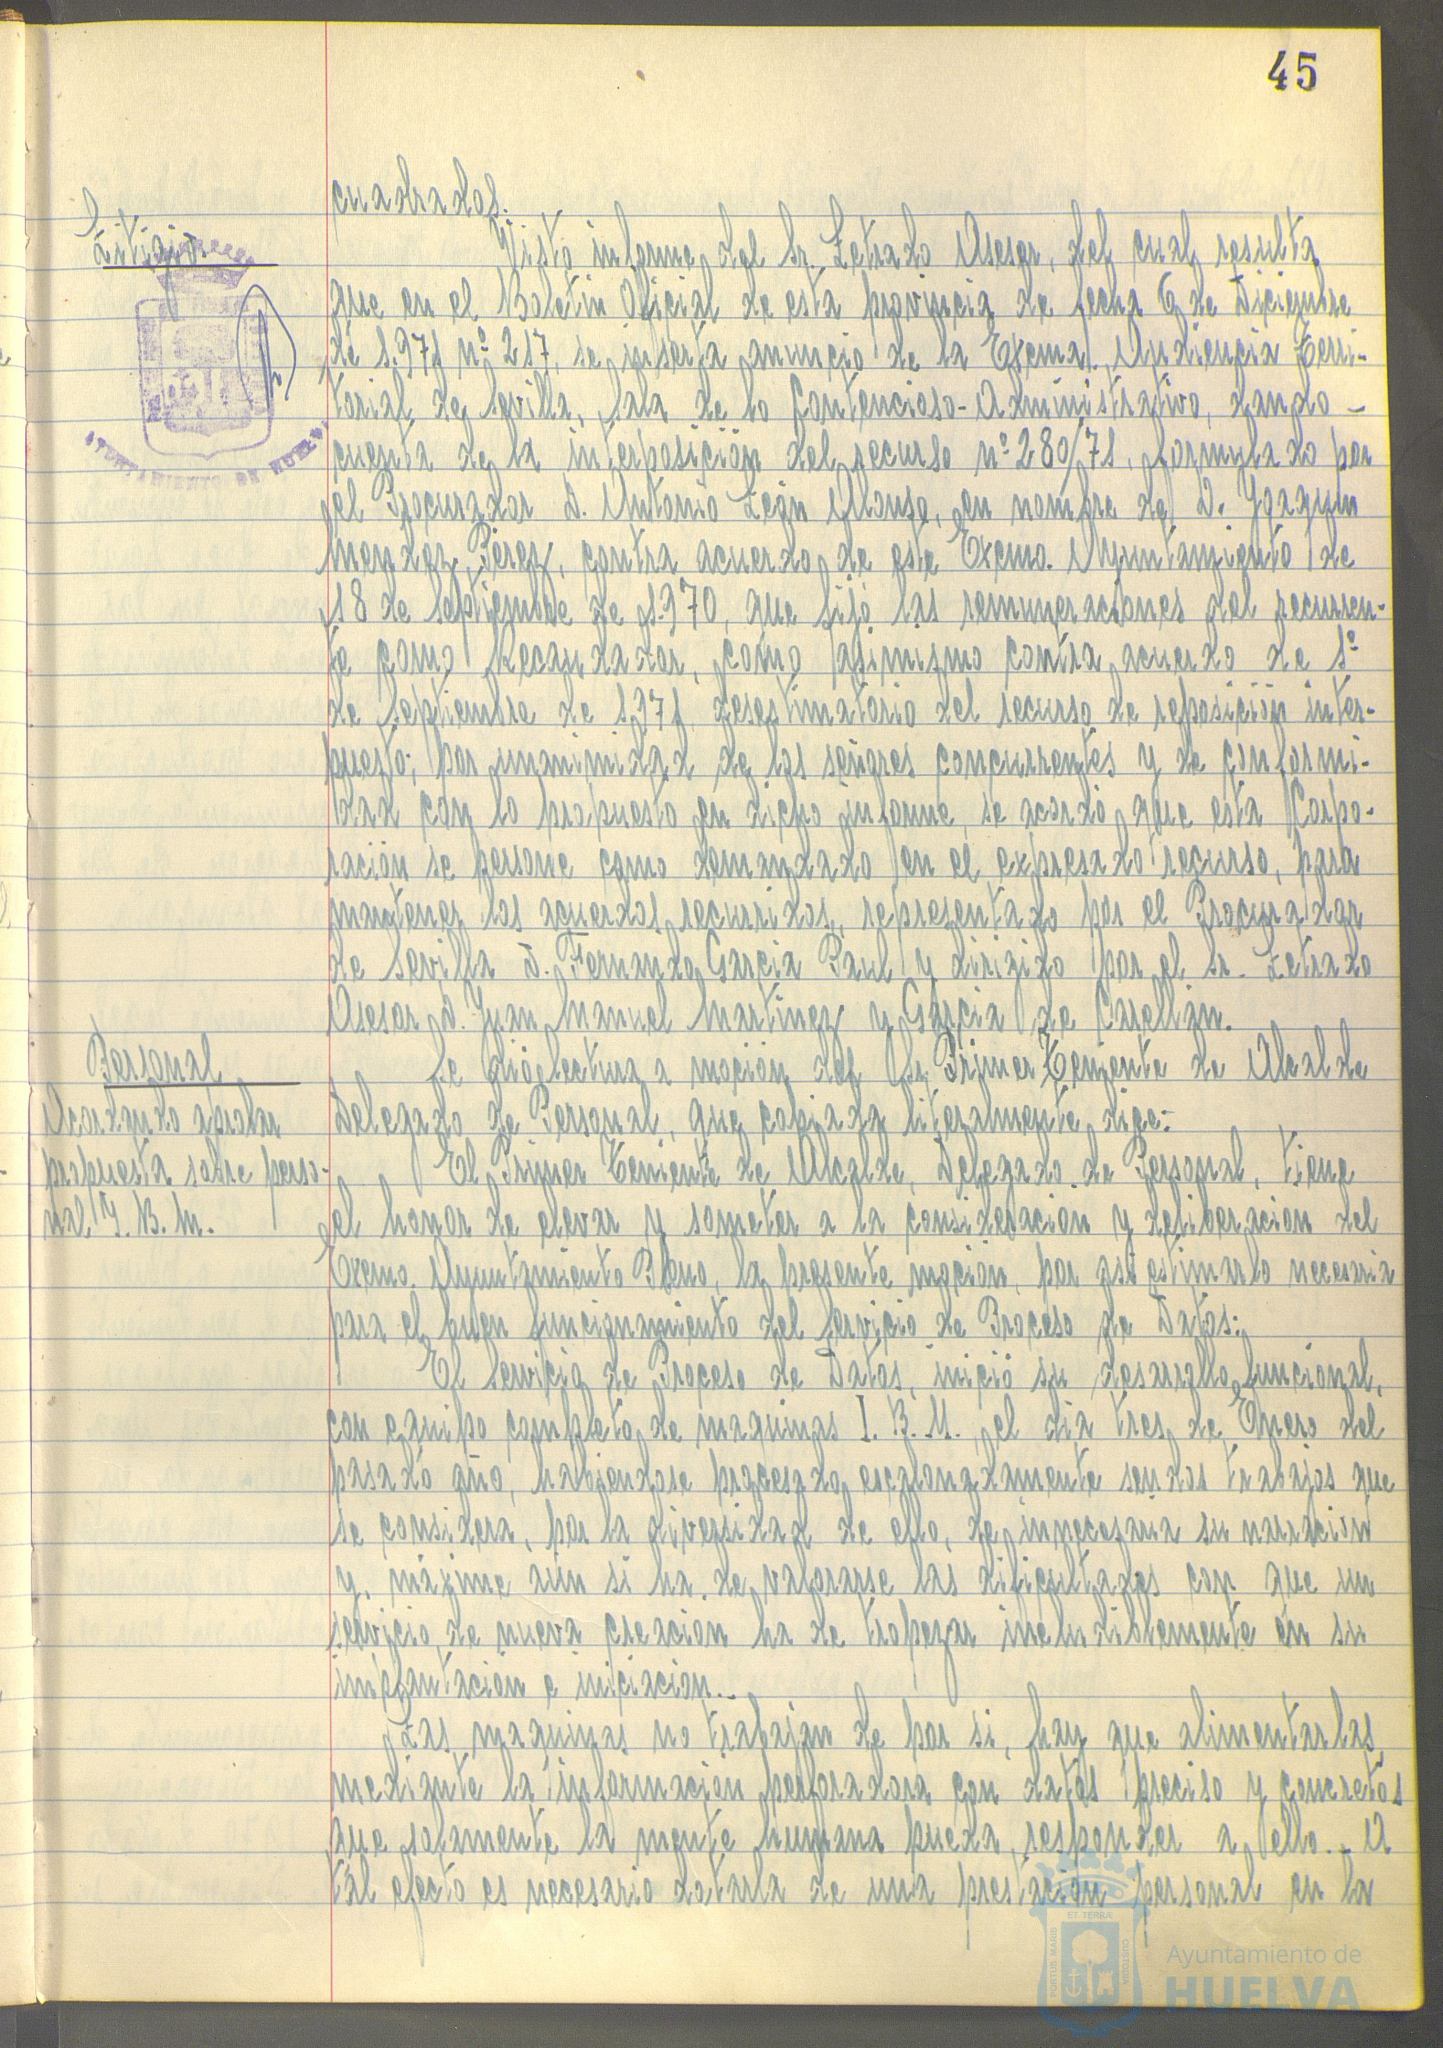 45
cuadrados.
Litigio.
Visto informe del Sr. Letrado Asesor, del cual resulta
que en el Boletin Oficial de esta provincia de fecha 6 de Diciembre
de 1.971 nº 217, se inserta anuncio de la Excma. Audiencia Terri-
torial de Sevilla, Sala de lo Contencioso-Administrativo, dando
cuenta de la interposición del recurso nº 280/71, formulado por
el Procurador D. Antonio León Alonso, en nombre de D. Joaquin
Mendez Pérez, contra acuerdo de este Excmo. Ayuntamiento de
18 de Septiembre de 1.970, que fijó las remuneraciones del recurren-
te como Recaudador, como asimismo contra acuerdo de 1º
de Septiembre de 1.971, desestimatorio del recurso de reposición inter-
puesto; por unanimidad de los señores concurrentes y de conformi-
dad con lo propuesto en dicho informe, se acordó que esta Corpo-
ración se persone como demandado en el expresado recurso, para
mantener los acuerdos recurridos, representado por el Procurador
de Sevilla D. Fernando Garcia Paul y dirigido por el Sr. Letrado
Asesor D. Juan Manuel Martinez y Garcia de Carellan.
Personal
Acordando aprobar
propuesta sobre perso-
nal I.B.M.
Se dió lectura a moción del Sr. Primer Teniente de Alcalde
Delegado de Personal, que copiada literalmente dice:-
El Primer Teniente de Alcalde, Delegado de Personal, tiene
el honor de elevar y someter a la consideracion y deliberacion del
Excmo. Ayuntamiento Pleno, la presente mocion, por asi estimarlo necesaria
para el buen funcionamiento del Servicio de Proceso de Datos:
El Servicio de Proceso de Datos, inició su desarrollo funcional,
con equipo completo de maquinas I.B.M., el dia tres de Enero del
pasado año, habiendose procesado escalonadamente sendos trabajos que
se considera, por la diversidad de ello, de innecesaria su narración
y, máxime aún si ha de valorarse las dificultades con que un
servicio de nueva creacion ha de tropezar ineludiblemente en su
implantacion e iniciacion.-
Las maquinas no trabajan de por si, hay que alimentarlas
mediante la informacion perforadora con datos preciso y concretos
que solamente la mente humana pueda responder a ello.- A
tal efecto es necesario dotarla de una prestacion personal en la
AYUNTAMIENTO DE HUELVA
PORTUS MARIS ET TERRÆ CUSTODIA
Ayuntamiento de
HUELVA